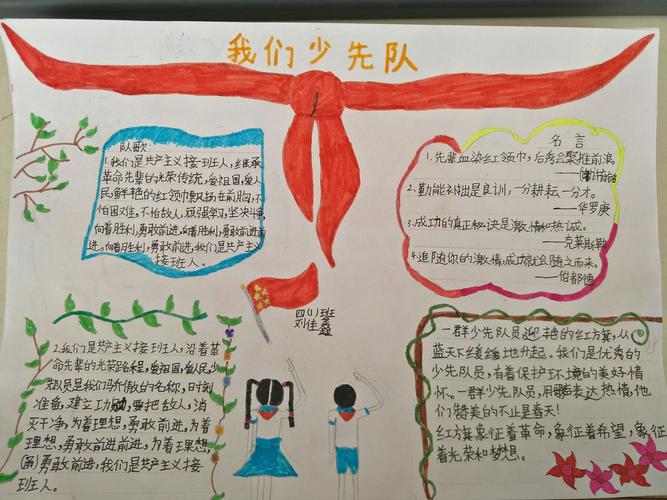 我们少先队
队歌
1.我们是共产主义接班人,继承
革命先辈的光荣传统,爱祖国,爱人
民,鲜艳的红领巾飘扬在前胸,不
怕困难,不怕敌人,顽强学习,坚决斗争,
向着胜利,勇敢前进,向着胜利,勇敢前进前
进,向着胜利,勇敢前进,我们是共产主义
接班人。
名言
1.先辈血染红领巾,后秀会聚推前浪
2.勤能补拙是良训,一分耕耘一分才。
——华罗庚
3.成功的真正秘诀是激情和热诚。
——克莱斯勒
4.追随你的激情,成功就会随之而来。
——伯都德
四(1)班
刘佳鑫
2.我们是共产主义接班人,沿着革
命先辈的光荣路程,爱祖国,爱人民,少
先队员是我们骄傲的名称,时刻
准备,建立功勋,要把敌人,消
灭干净,为着理想,勇敢前进,为着
理想,勇敢前进前进,为着理想,
勇敢前进,我们是共产主义接
班人。
一群少先队员迎艳的红方旗,从
蓝天下缓缓地升起。我们是优秀的
少先队员,有着保护环境的美好情
怀。一群少先队员,用歌表达热情,他
们赞美的不止是春天!
红旗象征着革命,象征着希望,象征
着光荣和梦想。